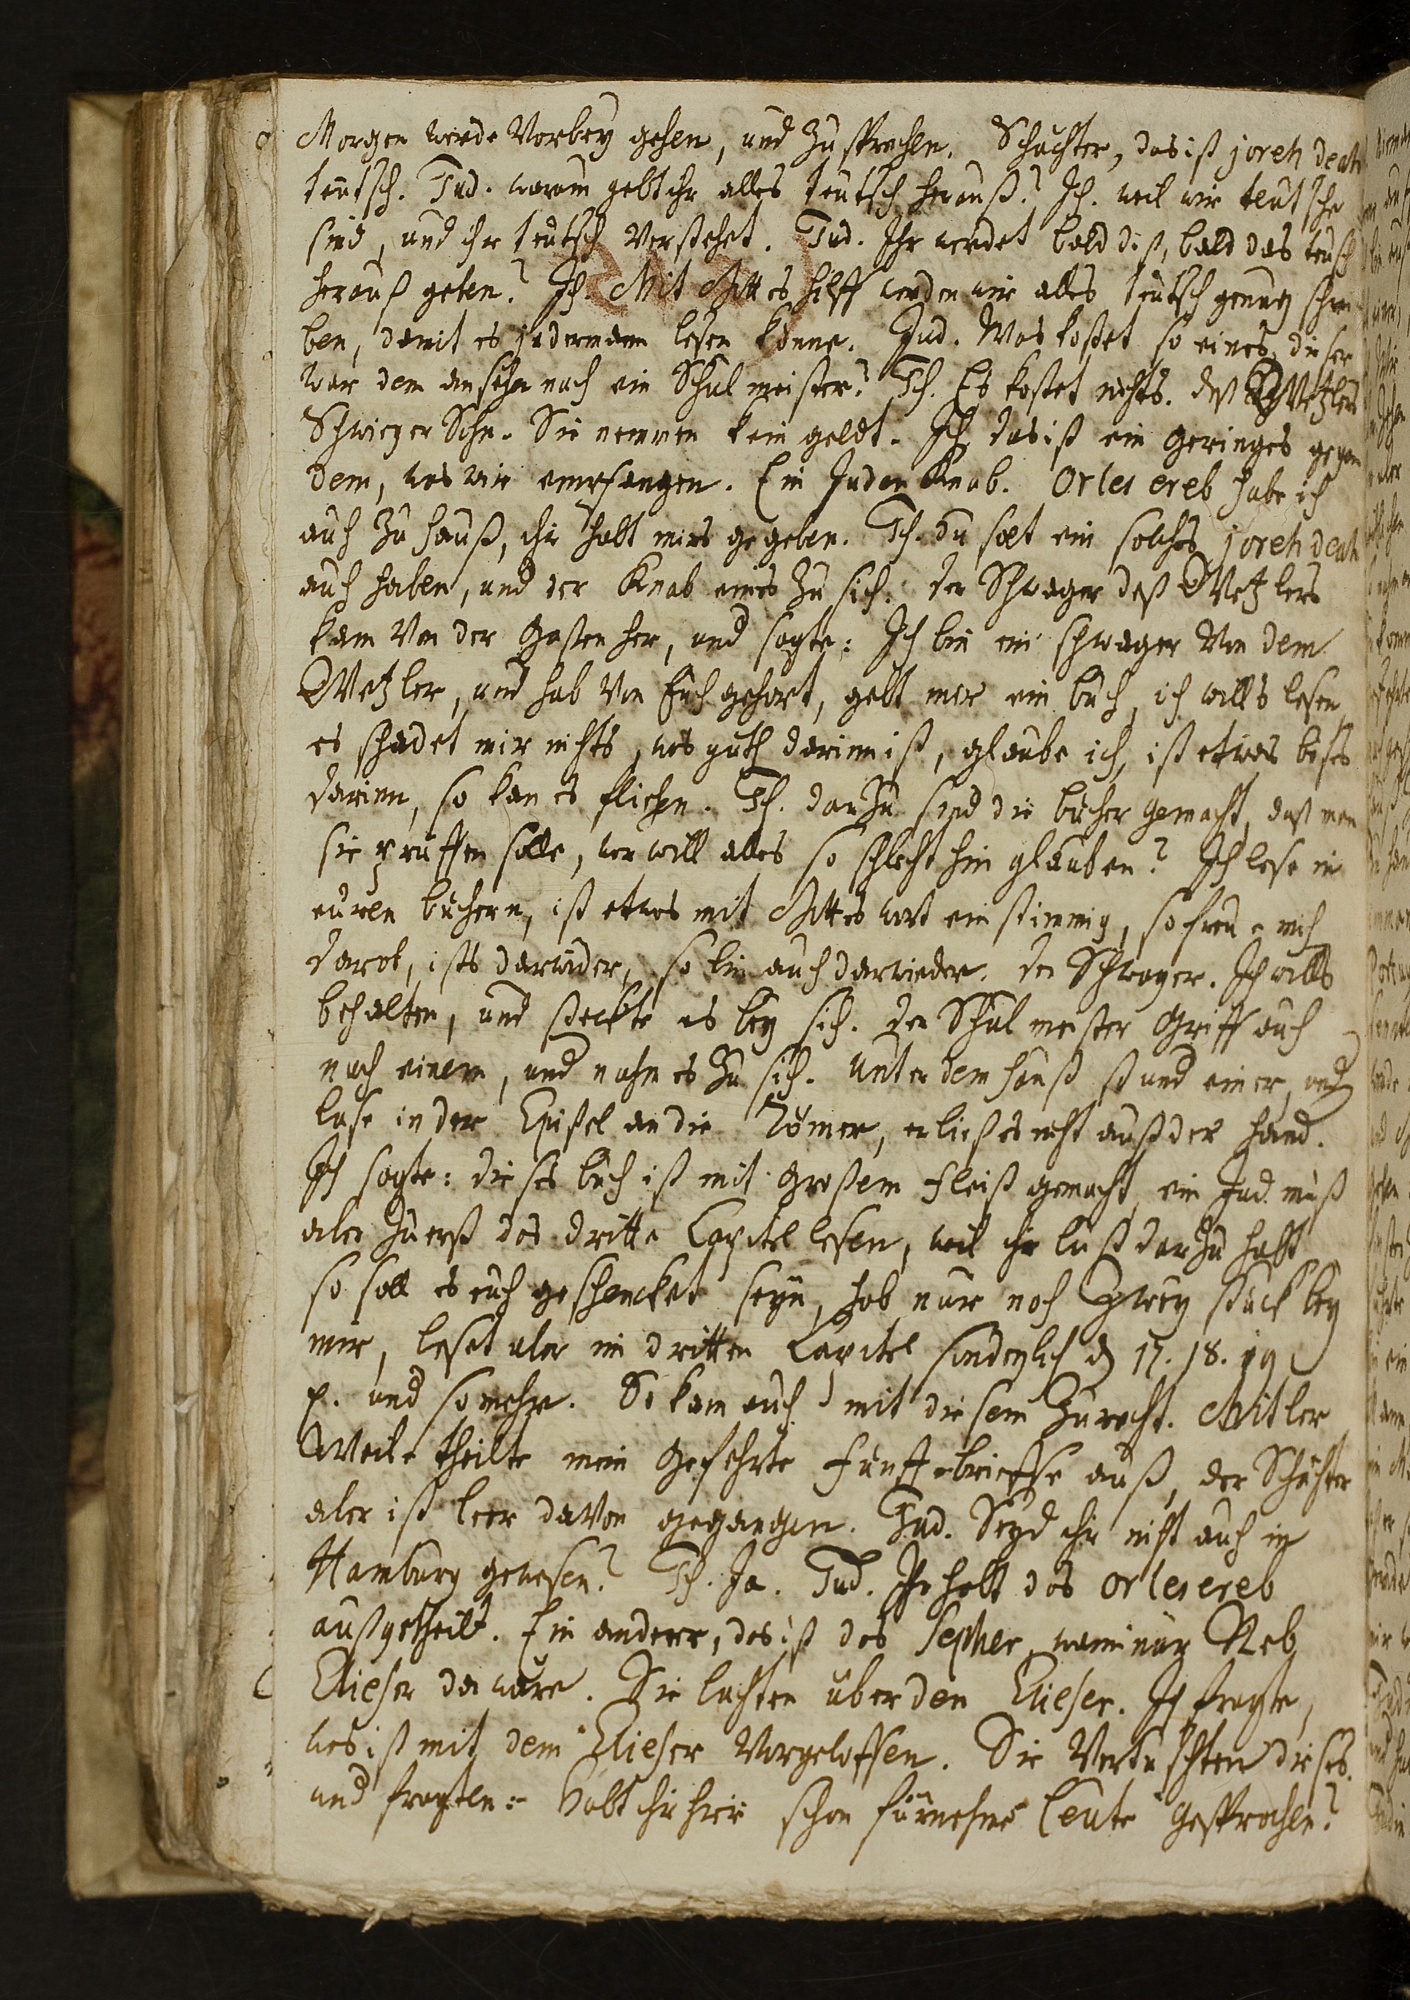 Morgen werde Vorbey gehen, und Zusprechen. Schächter, das ist joreh deah
teutsch. Jud. warum gebt ihr alles teutsch herauß? Ich. weil wir teutsche
sind, und ihr teutsch Verstehet. Jud. Ihr werdet bald diß, bald das teutsch
herauß geben? Ich. Mit Gottes hilff werden wir alles teutsch genug schrei
ben, damit es jederman lesen könne. Jud. Was kostet so eines, dieser
war dem ansehn nach ein Schulmeister? Ich. Es kostet nichts. deß Wetzlers
Schwieger Sohn. Sie nemmen kein geldt. Ich. das ist ein geringes gegen
dem, was wir empfangen. Ein Juden Knab. Or les ereb habe ich
auch Zu hauß, ihr habt mirs gegeben. Ich. du solt ein solches joreh deah
auch haben, und der Knab eines Zu sich. der Schwager deß Wetzlers
kam Von der Gassen her, und sagte: Ich bin ein schwager Von dem
Wetzler, und hab Von Euch gehört, gebt mir ein buch, ich wills lesen,
es schadet mir nichts, was guth darinn ist, glaube ich, ist etwas böses
darinn, so kan es fliehen. Ich. darZu sind die bücher gemacht, daß man
sie prüffen solle, wer will alles so schlecht hin glauben? Ich lese in
euren büchern, ist etwas mit Gottes wort einstimmig, so freue mich
darob, ists darwider, so bin auch darwieder. der Schwager. Ich wills
behalten, und steckte es bey sich. der Schulmeister Griff auch
nach einem, und nahm es Zu sich. Unter dem hauß stund einer, und
lase in der Epistel an die Römer, er ließ es nicht auß der hand.
Ich sagte: dieses buch ist mit großem fleiß gemacht, ein Jud muß
aber Zuerst das dritte Capitel lesen, weil ihr lust darZu habt
so soll es euch geschencket seyn, hab nur noch Zwey stück bey
mir, leset aber im dritten Capitel sonderlich d 17. 18. 19
und so mehr. So kam auch mit diesem Zurecht. Mitler
Weile theilte mein Gefehrte fünff briefse auß, der Schächter
aber ist leer davon gegangen. Jud. Seyd ihr nicht auch in
Hamburg gewesen? Ich. Ja. Jud. Ihr habt das or les ereb
außgetheilt. Ein anderer, das ist das Sepher, wann nur Reb
Elieser da wäre. Sie lachten über den Elieser. Ich fragte,
was ist mit dem Elieser Vorgeloffen. Sie Vertuschten dieses.
und fragten: Habt ihr hier schon fürnehme leute gesprochen?